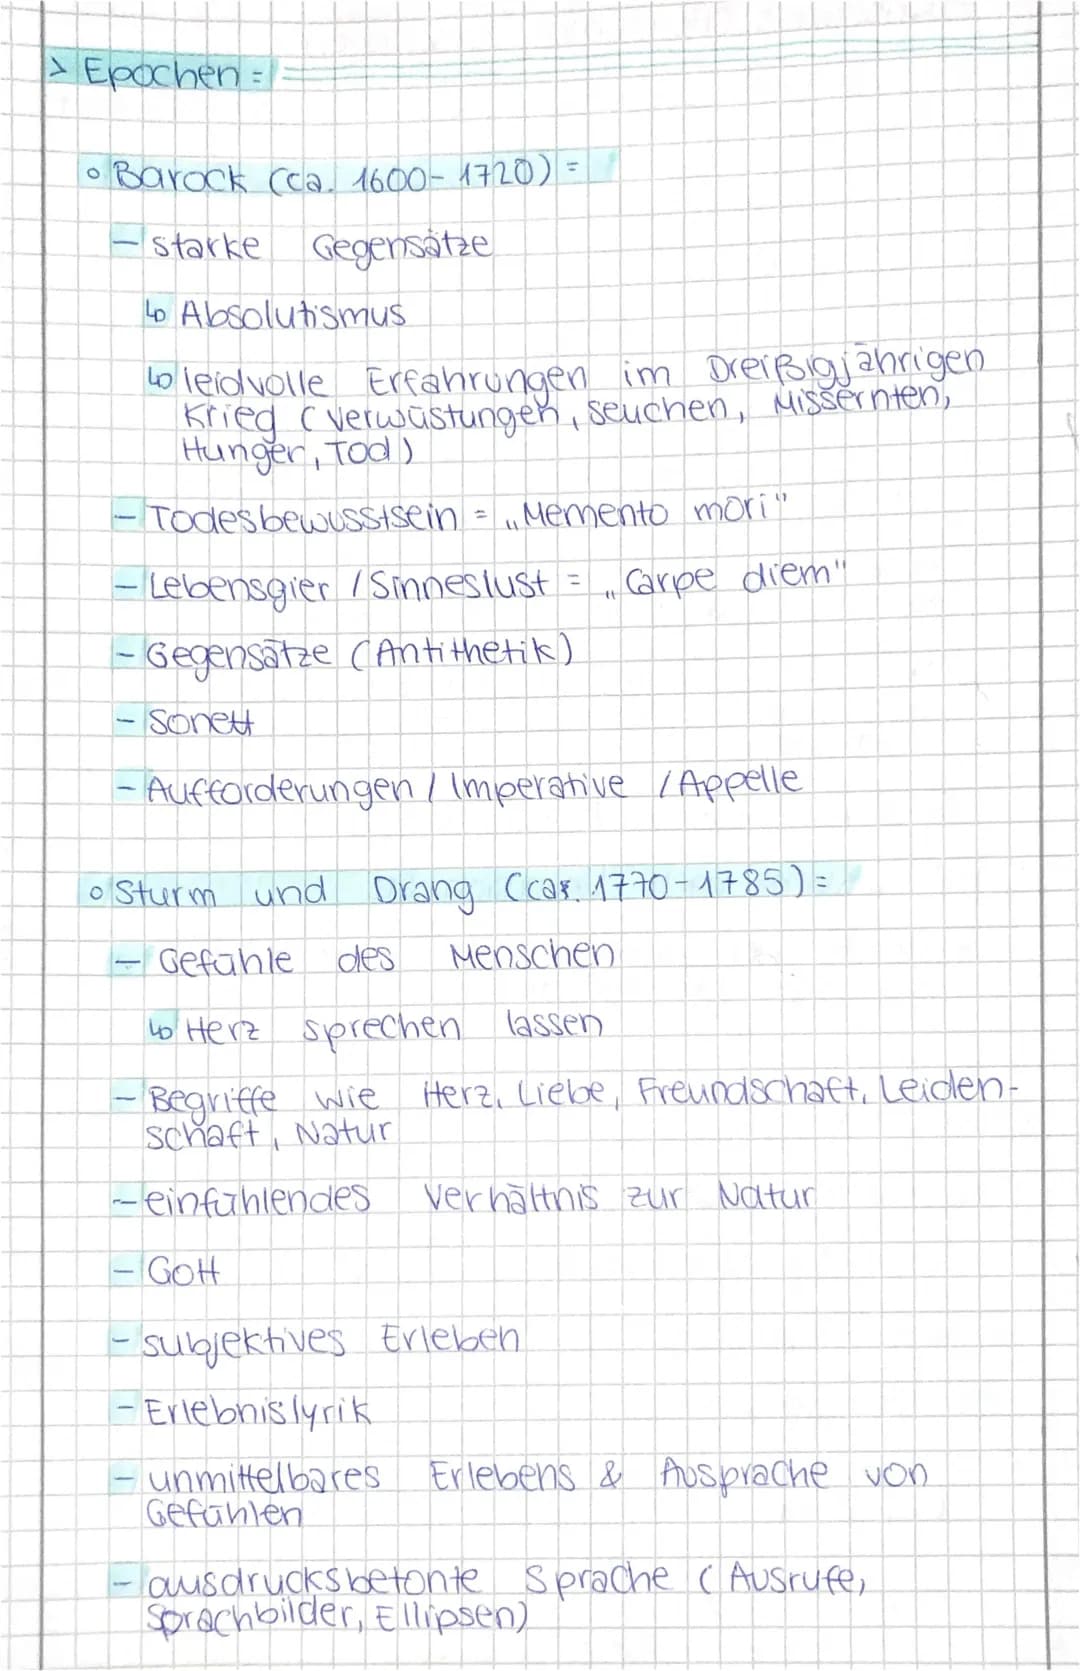 > Epochen =
◦ Barock (ca. 1600-1720) =
- starke Gegensätze
↳ Absolutismus
↳ leidvolle Erfahrungen im Dreißigjährigen
Krieg (Verwüstungen, Seuchen, Missernten,
Hunger, Tod)
- Todesbewusstsein = „Memento mori"
- Lebensgier / Sinneslust = „Carpe diem"
- Gegensätze (Antithetik)
- Sonett
- Aufforderungen / Imperative / Appelle
◦ Sturm und Drang (ca. 1770-1785) =
- Gefühle des Menschen
↳ Herz sprechen lassen
- Begriffe wie Herz, Liebe, Freundschaft, Leiden-
schaft, Natur
- einfühlendes Verhältnis zur Natur
- Gott
- subjektives Erleben
- Erlebnislyrik
- unmittelbares Erlebens & Aussprache von
Gefühlen
- ausdrucksbetonte Sprache (Ausrufe,
Sprachbilder, Ellipsen)